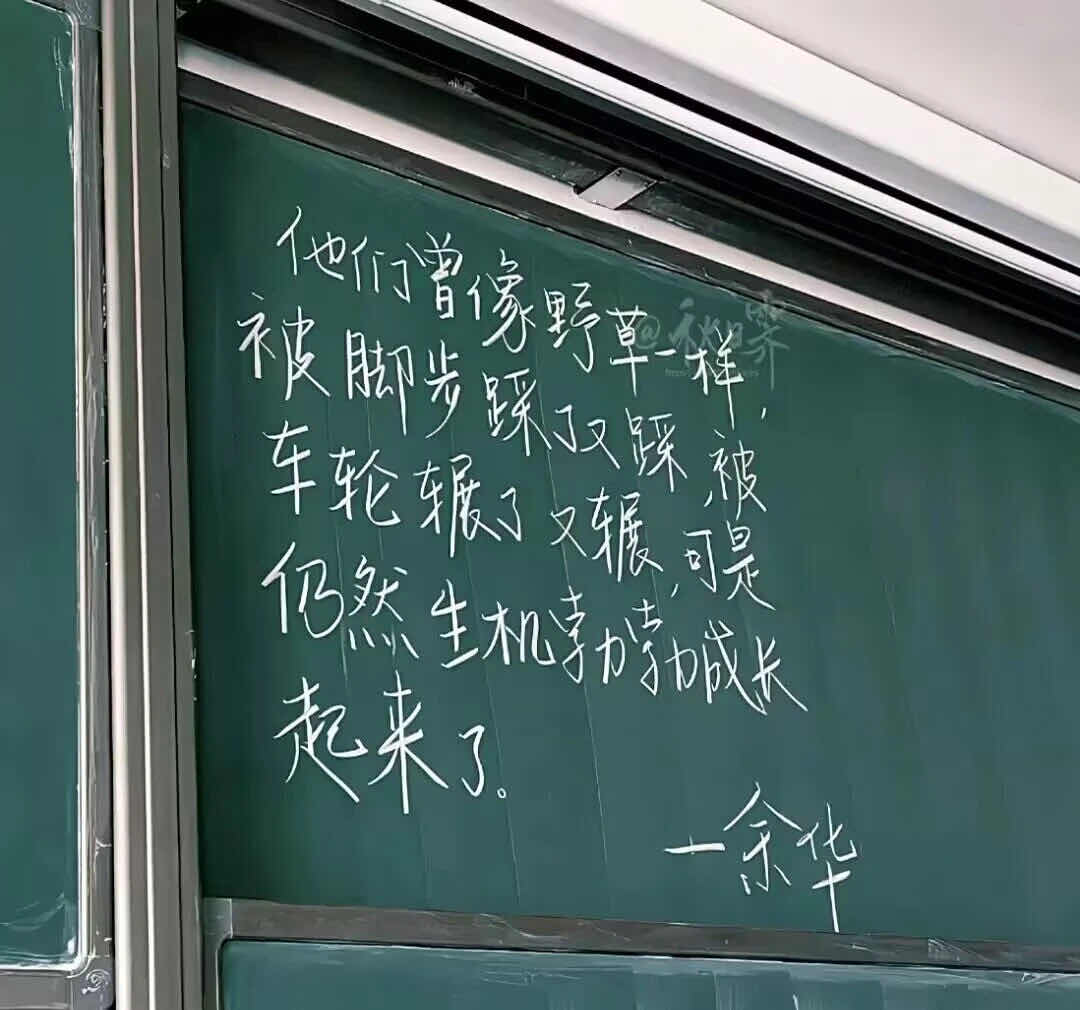 他们曾像野草一样,
被脚步踩了又踩,被
车轮辗了又辗,可是
仍然生机勃勃成长
起来了。
—余华